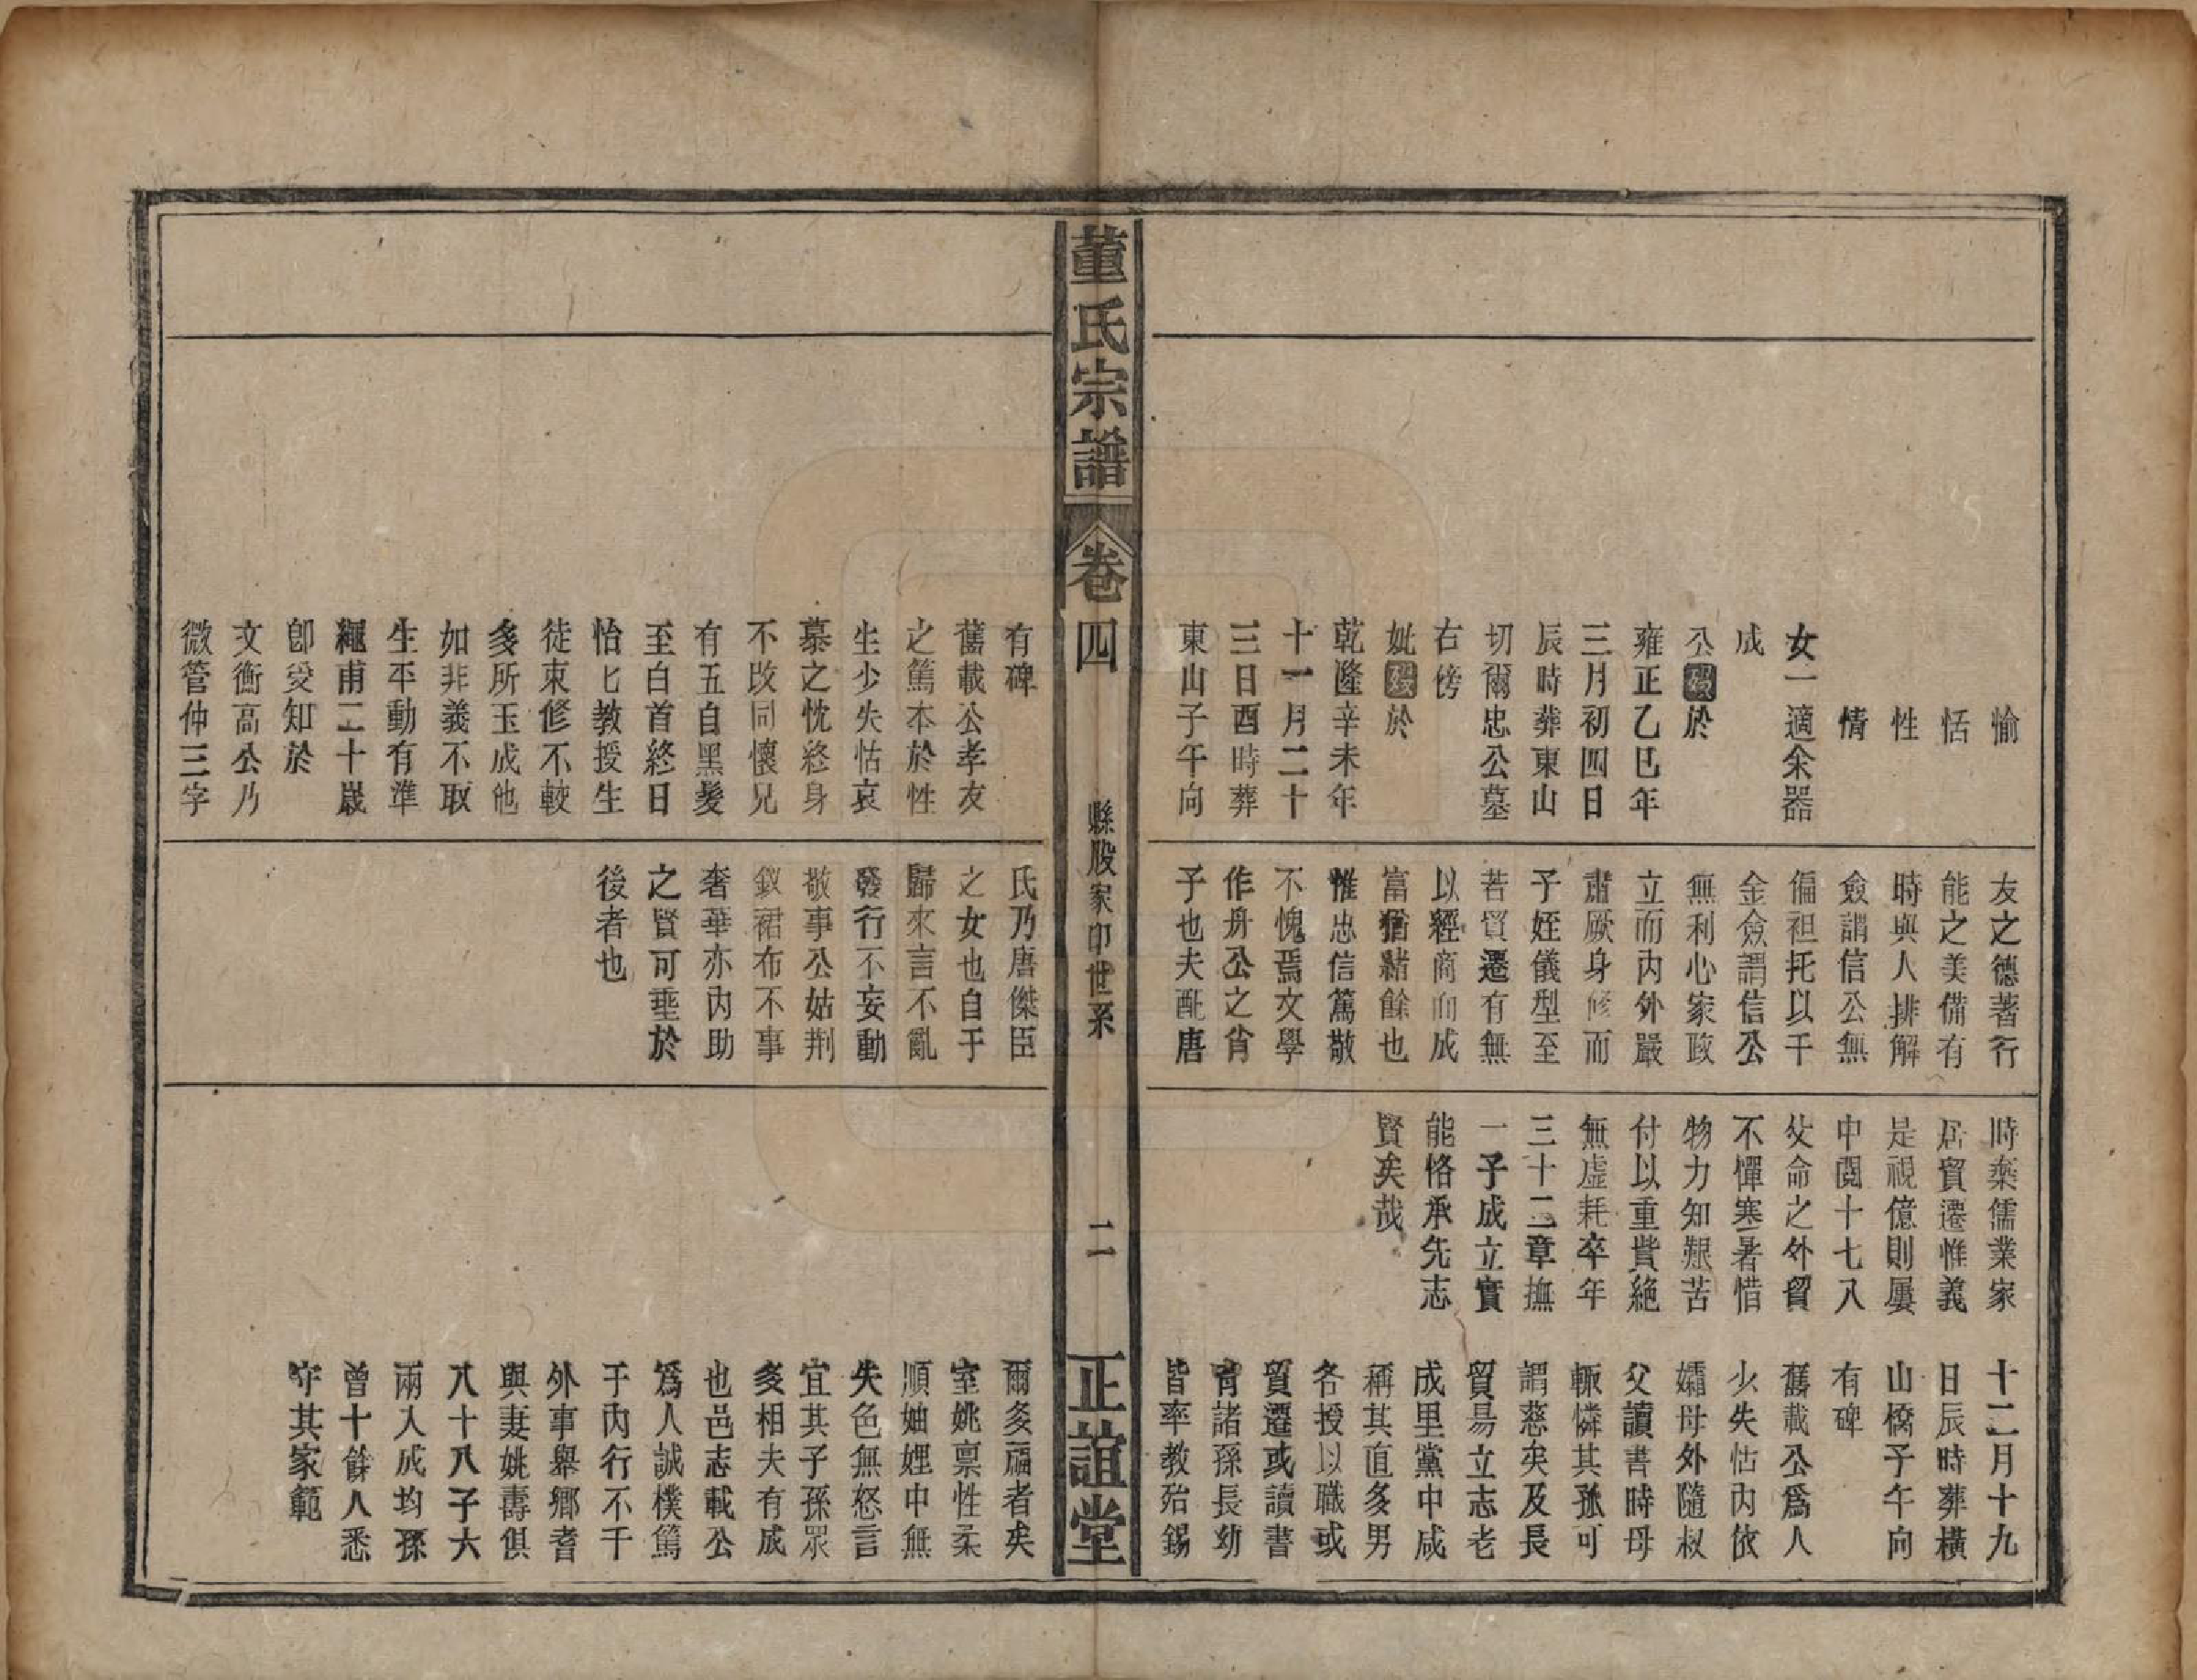 愉
恬
性
情
女一適余器
成
公殁於
雍正乙巳年
三月初四日
辰時葬東山
切爾忠公墓
右傍
妣殁於
乾隆辛未年
十一月二十
三日酉時葬
東山子午向
友之德著行
能之美備有
時與人排解
僉謂信公無
偏袒托以千
金僉謂信公
無利心家政
立而內外嚴
肅厥身修而
子姪儀型至
若貿遷有無
以經商而成
富猶緒餘也
惟忠信篤敬
不愧焉文學
作舟公之肖
子也夫配唐
時棄儒業家
居貿遷惟義
是視億則屢
中閱十七八
父命之外貿
不憚寒暑惜
物力知艱苦
付以重貲絕
無虛耗卒年
三十二章撫
一子成立實
能恪承先志
賢矣哉
十二月十九
日辰時葬橫
山橋子午向
有碑
舊載公爲人
少失怙內依
孀母外隨叔
父讀書時母
輒憐其孤可
謂慈矣及長
貿易立志老
成里黨中咸
稱其直多男
各授以職或
貿遷或讀書
育諸孫長幼
皆率教殆錫
董氏宗譜
卷四
縣股家印世系
二
正誼堂
有碑
舊載公孝友
之篤本於性
生少失怙哀
慕之忱終身
不改同懷兄
有五自黑髮
至白首終日
怡怡教授生
徒束修不較
多所玉成他
如非義不取
生平動有準
繩甫二十歲
卽受知於
文衡高公乃
微管仲三字
氏乃唐傑臣
之女也自于
歸來言不亂
發行不妄動
敬事公姑荆
釵裙布不事
奢華亦內助
之賢可垂於
後者也
爾多福者矣
室姚稟性柔
順妯娌中無
失色無怒言
宜其子孫眾
多相夫有成
也邑志載公
爲人誠樸篤
于內行不干
外事舉鄉耆
與妻姚壽俱
八十八子六
兩入成均孫
曾十餘人悉
守其家範